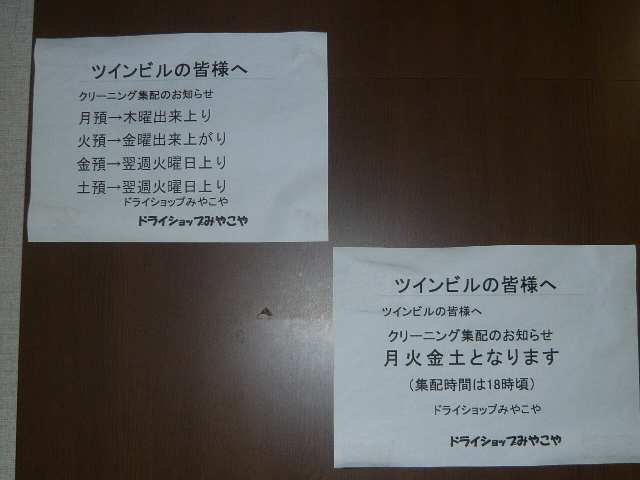 ツインビルの皆様へ
クリーニング集配のお知らせ
月預→木曜出来上り
火預→金曜出来上がり
金預→翌週火曜日上り
土預→翌週火曜日上り
ドライショップみやこや
ドライショップみやこや
ツインビルの皆様へ
ツインビルの皆様へ
クリーニング集配のお知らせ
月火金土となります
（集配時間は18時頃）
ドライショップみやこや
ドライショップみやこや